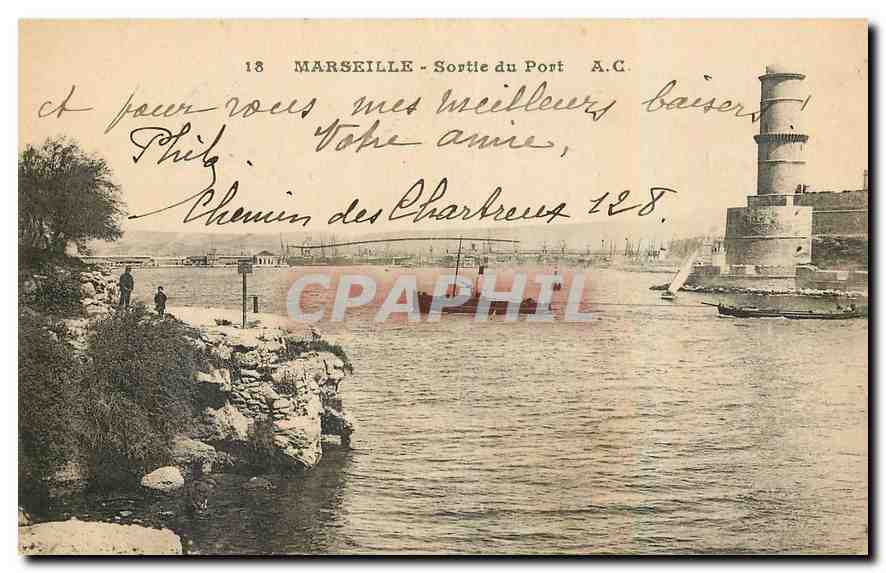 18 MARSEILLE - Sortie du Port A.C.
et pour vous mes meilleurs baisers,
Votre amie,
Phil
Chemin des Chartreux 128.
CPAPHIL